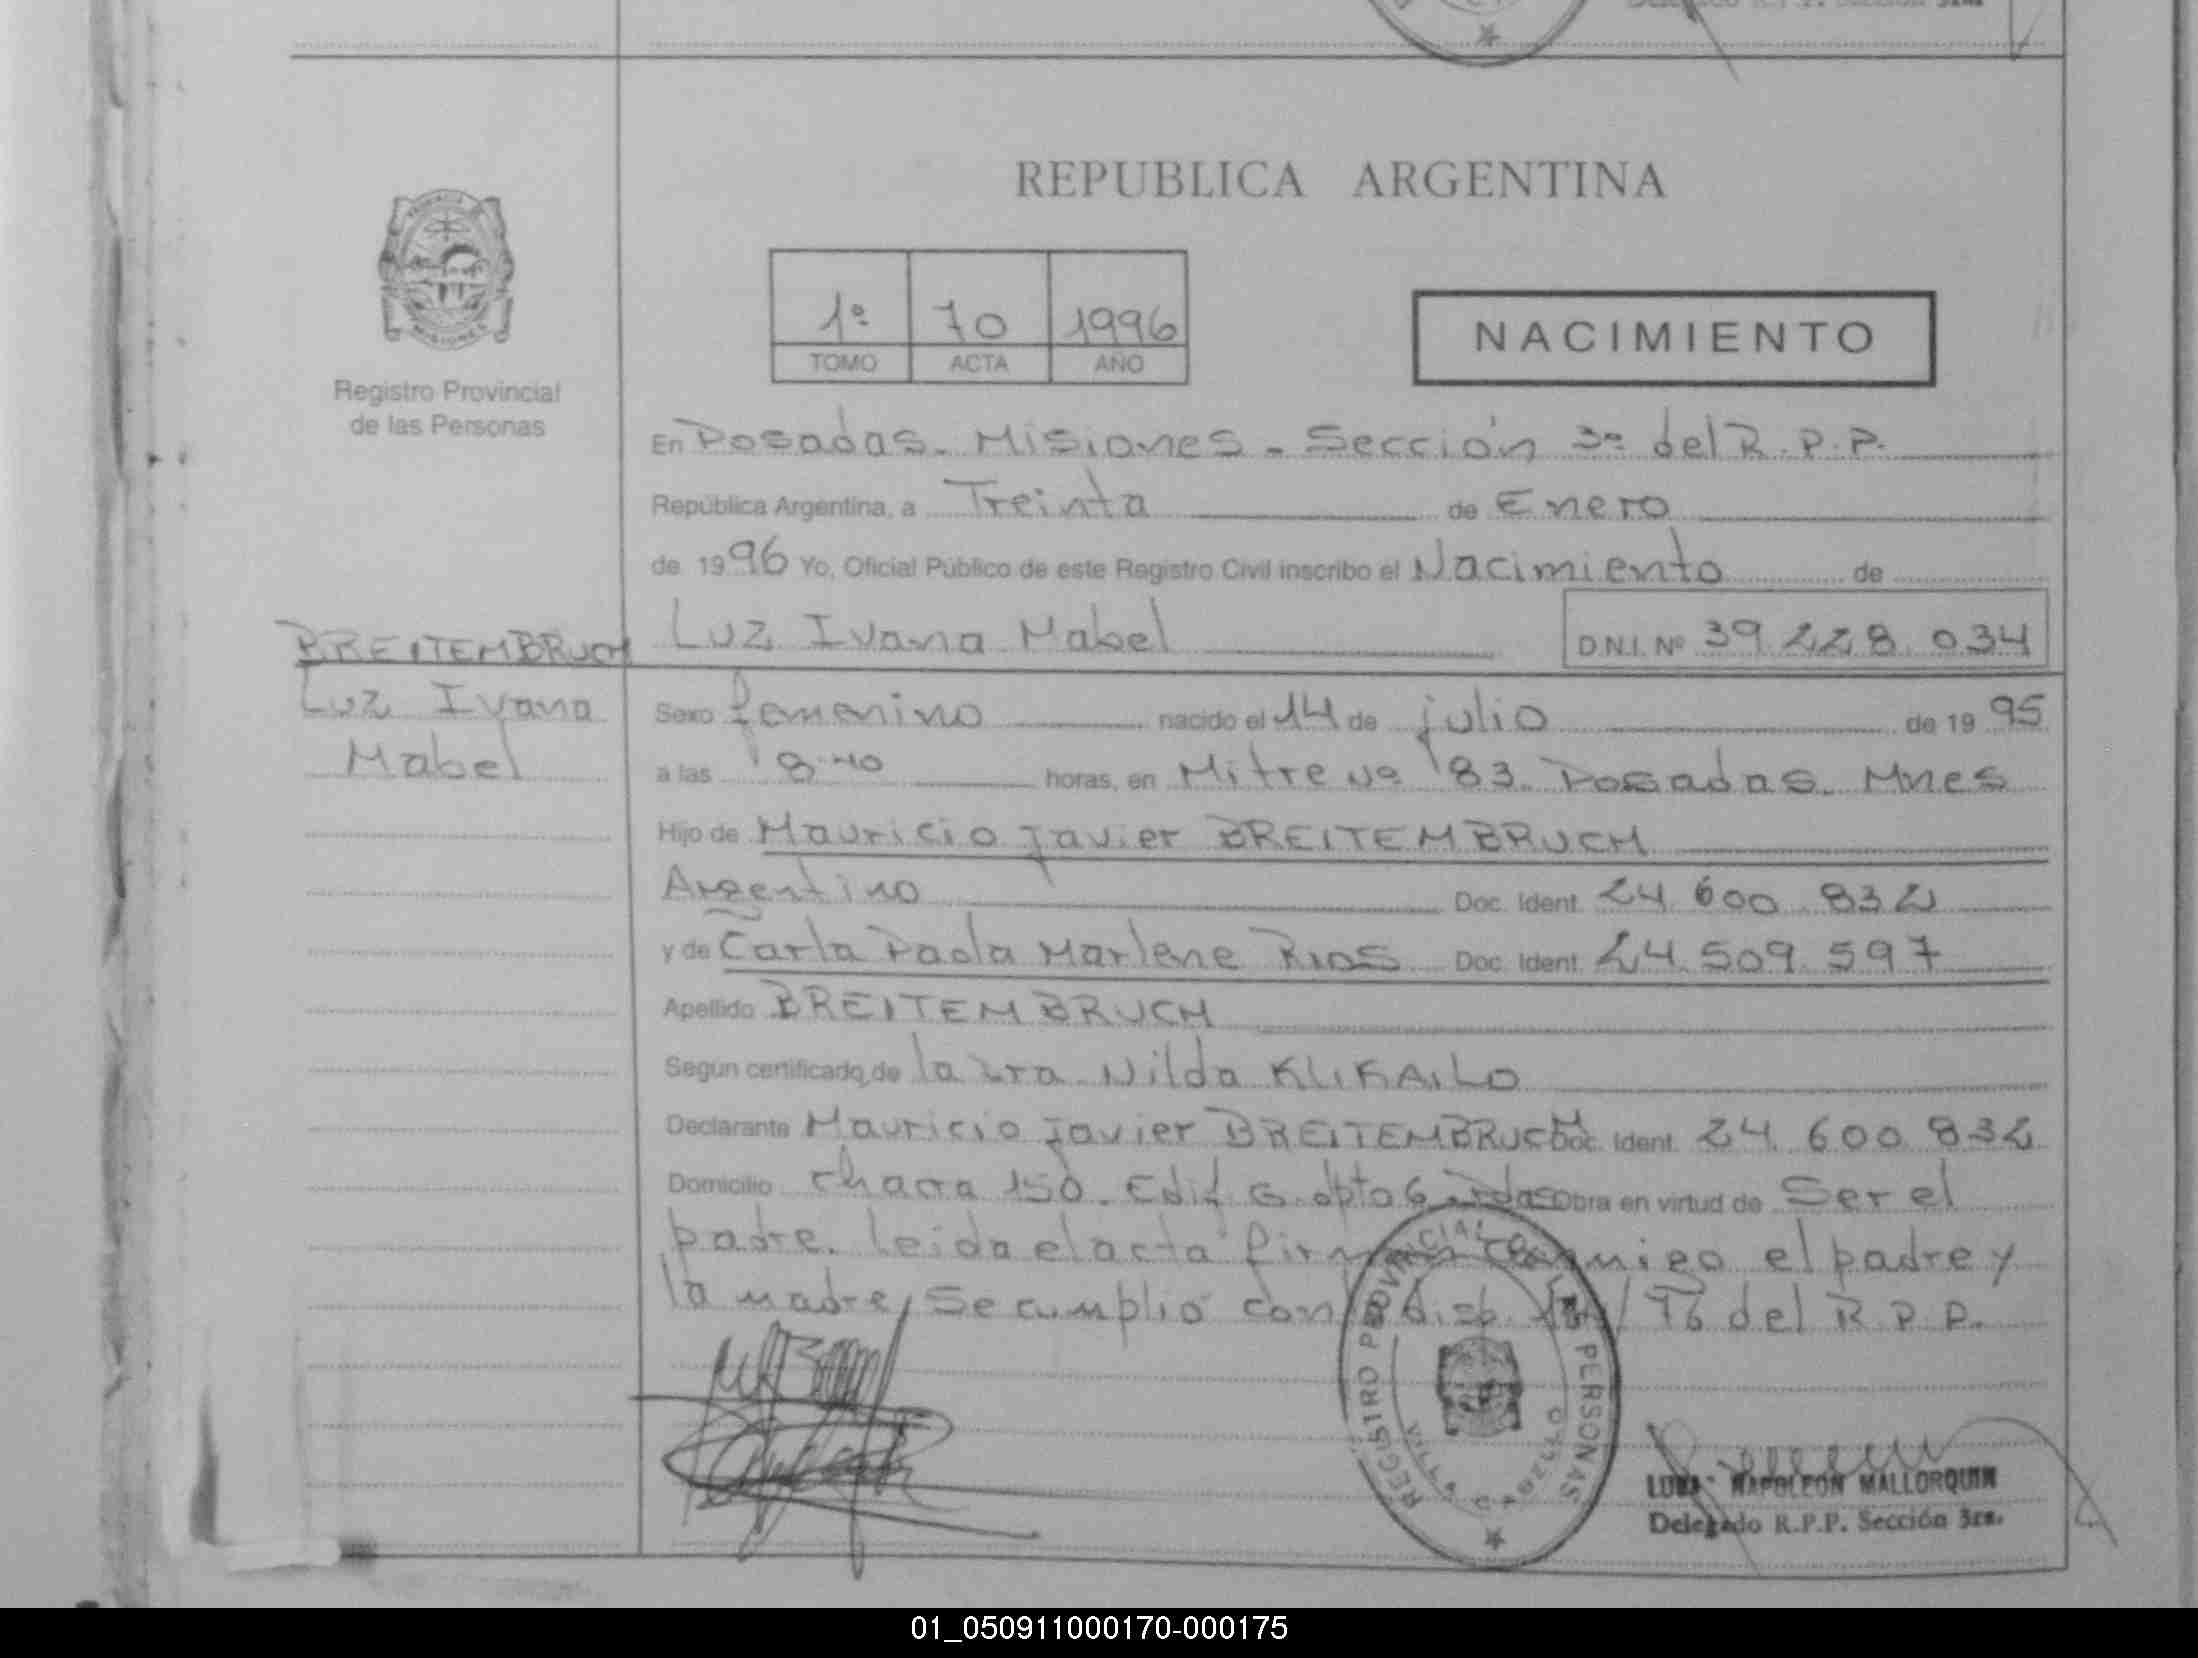 Delegado R.P.P. Sección 3ra.
REPUBLICA ARGENTINA
PROVINCIA
MISIONES
Registro Provincial
de las Personas
1º 70 1996
TOMO ACTA AÑO
NACIMIENTO
En Posadas. Misiones - Sección 3ª del R.P.P.
República Argentina, a Treinta de Enero
de 1996 Yo, Oficial Público de este Registro Civil inscribo el Nacimiento de
Luz Ivana Mabel D.N.I. Nº 39.228.034
BREITEMBRUCH
Luz Ivana
Mabel
Sexo femenino nacido el 14 de julio de 1995
a las 8:40 horas, en Mitre Nº 183. Posadas. Mnes
Hijo de Mauricio Javier BREITEMBRUCH
Argentino Doc. Ident. 24.600.832
y de Carla Paola Marlene RIOS Doc. Ident. 24.509.597
Apellido BREITEMBRUCH
Según certificado de la Nilda
Declarante Mauricio Javier BREITEMBRUCH Doc. Ident. 24.600.832
Domicilio chacra 150. Edif G. dpto 6. Pdas Obra en virtud de Ser el
padre. Leida el acta firman conmigo el padre y
la madre, Se cumplió con disp. /96 del R.P.P.
REGISTRO PROVINCIAL DE LAS PERSONAS
NAPOLEON MALLORQUIN
Delegado R.P.P. Sección 3ra.
01_050911000170-000175